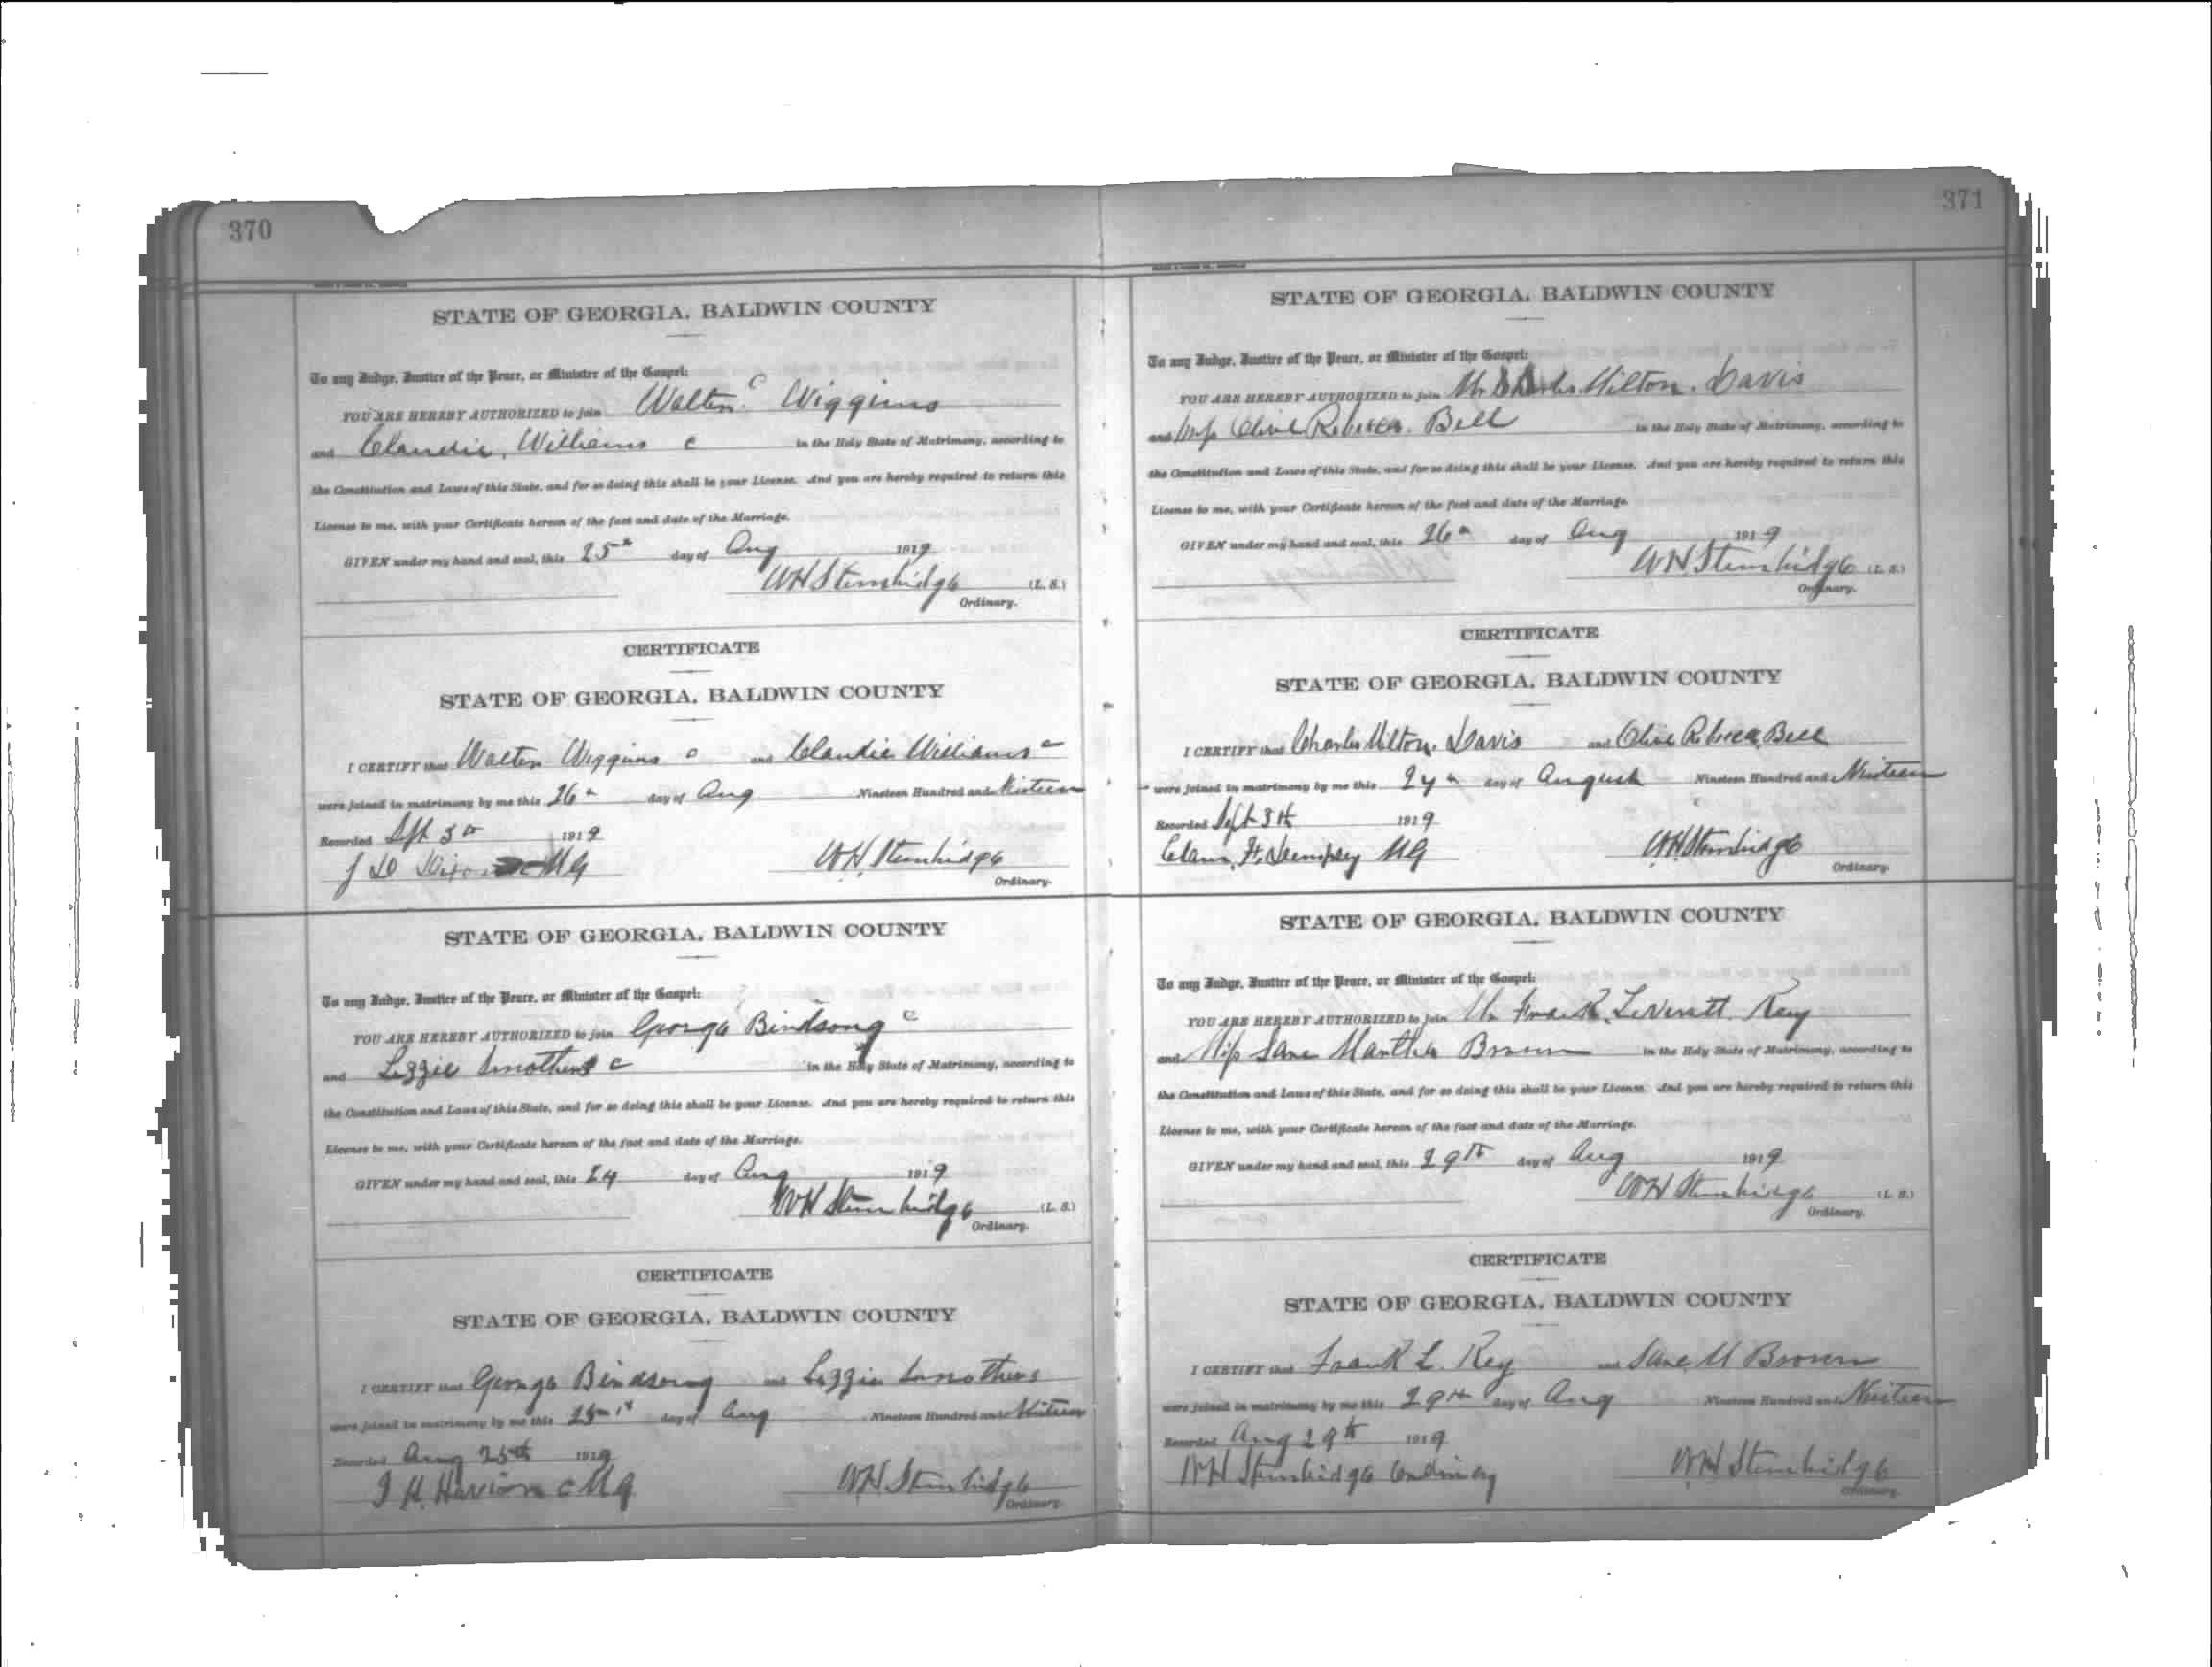 370
STATE OF GEORGIA, BALDWIN COUNTY
To any Judge, Justice of the Peace, or Minister of the Gospel:
YOU ARE HEREBY AUTHORIZED to join Walter C Wiggins
and Claudie, Williams c in the Holy State of Matrimony, according to
the Constitution and Laws of this State, and for so doing this shall be your License. And you are hereby required to return this
License to me, with your Certificate hereon of the fact and date of the Marriage.
GIVEN under my hand and seal, this 25th day of Aug 1919
WH Stembridge (L. S.)
Ordinary.
CERTIFICATE
STATE OF GEORGIA, BALDWIN COUNTY
I CERTIFY that Walter Wiggins c and Claudie Williams c
were joined in matrimony by me this 26th day of Aug Nineteen Hundred and Nineteen
Recorded Sept 3rd 1919
J D MG
W.H. Stembridge
Ordinary.
STATE OF GEORGIA, BALDWIN COUNTY
To any Judge, Justice of the Peace, or Minister of the Gospel:
YOU ARE HEREBY AUTHORIZED to join George Birdsong c
and Lizzie Smothers c in the Holy State of Matrimony, according to
the Constitution and Laws of this State, and for so doing this shall be your License. And you are hereby required to return this
License to me, with your Certificate hereon of the fact and date of the Marriage.
GIVEN under my hand and seal, this 24 day of Aug 1919
WH Stembridge (L. S.)
Ordinary.
CERTIFICATE
STATE OF GEORGIA, BALDWIN COUNTY
I CERTIFY that George Birdsong and Lizzie Smothers
were joined in matrimony by me this day of Aug Nineteen Hundred and Nineteen
Recorded Aug 25th 1919
H. c MG
WH Stembridge
Ordinary.
371
STATE OF GEORGIA, BALDWIN COUNTY
To any Judge, Justice of the Peace, or Minister of the Gospel:
YOU ARE HEREBY AUTHORIZED to join Mr Charles Milton. Davis
and Miss Olive Rebecca. Bell in the Holy State of Matrimony, according to
the Constitution and Laws of this State, and for so doing this shall be your License. And you are hereby required to return this
License to me, with your Certificate hereon of the fact and date of the Marriage.
GIVEN under my hand and seal, this 26th day of Aug 1919
WH. Stembridge (L. S.)
Ordinary.
CERTIFICATE
STATE OF GEORGIA, BALDWIN COUNTY
I CERTIFY that Charles Milton. Davis and Olive Rebecca Bell
were joined in matrimony by me this 27th day of August Nineteen Hundred and Nineteen
Recorded Sept 3th 1919
Dempsey MG
W.H. Stembridge
Ordinary.
STATE OF GEORGIA, BALDWIN COUNTY
To any Judge, Justice of the Peace, or Minister of the Gospel:
YOU ARE HEREBY AUTHORIZED to join Mr Frank. Leverett. Key
and Miss Jane Martha Brown in the Holy State of Matrimony, according to
the Constitution and Laws of this State, and for so doing this shall be your License. And you are hereby required to return this
License to me, with your Certificate hereon of the fact and date of the Marriage.
GIVEN under my hand and seal, this 29th day of Aug 1919
WH Stembridge (L. S.)
Ordinary.
CERTIFICATE
STATE OF GEORGIA, BALDWIN COUNTY
I CERTIFY that Frank L. Key and Jane M Brown
were joined in matrimony by me this 29th day of Aug Nineteen Hundred and Nineteen
Recorded Aug 29th 1919
WH Stembridge Ordinary
WH Stembridge
Ordinary.